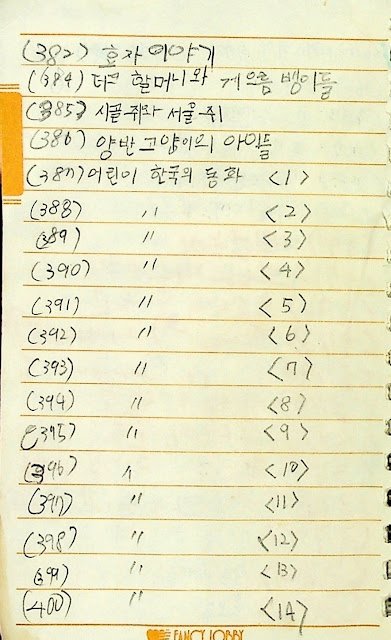 (382) 효자 이야기
(384) 데코 할머니와 게으름 뱅이들
(385) 시골쥐와 서울쥐
(386) 양반 고양이의 아이들
(387) 어린이 한국의 동화 <1>
(388) 〃 <2>
(389) 〃 <3>
(390) 〃 <4>
(391) 〃 <5>
(392) 〃 <6>
(393) 〃 <7>
(394) 〃 <8>
(395) 〃 <9>
(396) 〃 <10>
(397) 〃 <11>
(398) 〃 <12>
(399) 〃 <13>
(400) 〃 <14>
FANCY LOBBY